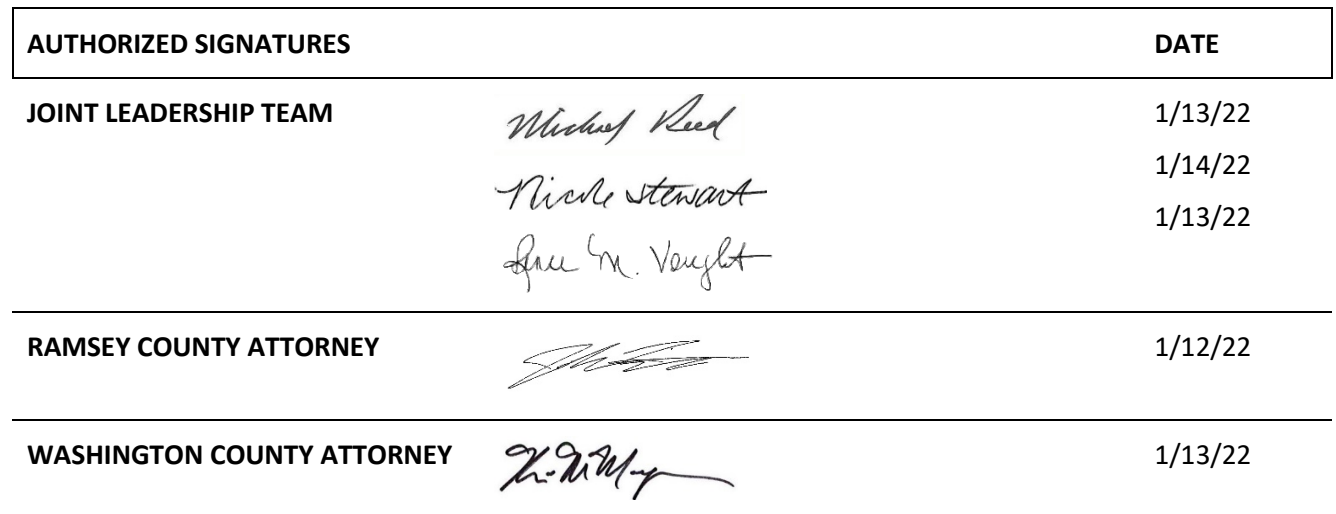 AUTHORIZED SIGNATURES DATE
JOINT LEADERSHIP TEAM Michael Reed 1/13/22
Nicole Stewart 1/14/22
M. Vaught 1/13/22
RAMSEY COUNTY ATTORNEY 1/12/22
WASHINGTON COUNTY ATTORNEY 1/13/22